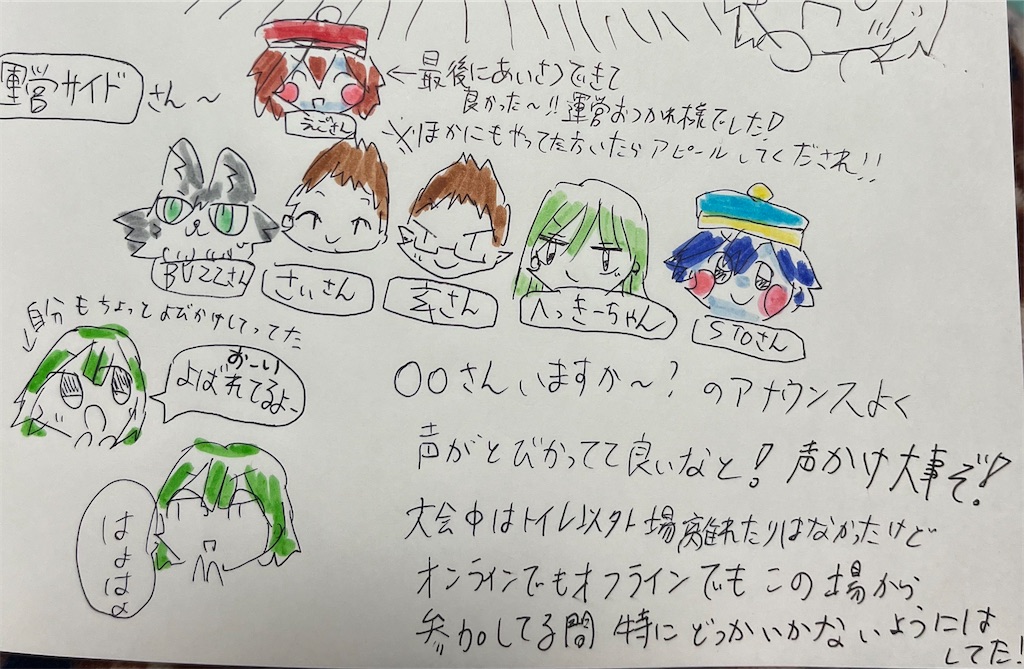 運営サイド
さん～
←最後にあいさつできて
良かった～!!運営おつかれ様でした!
えごさん
※ほかにもやってた方いたらアピールしてくだされ!!
BUZZさん
さいさん
幸さん
へっきーちゃん
STOさん
自分もちょっとよびかけしてってた
↓
おーい
よばれてるよー
○○さんいますか～?のアナウンスよく
声がとびかってて良いなと!声かけ大事ぞ!
はよはよ
大会中はトイレ以外場離れたりはなかったけど
オンラインでもオフラインでもこの場から
参加してる間特にどっかいかないようにはしてた!